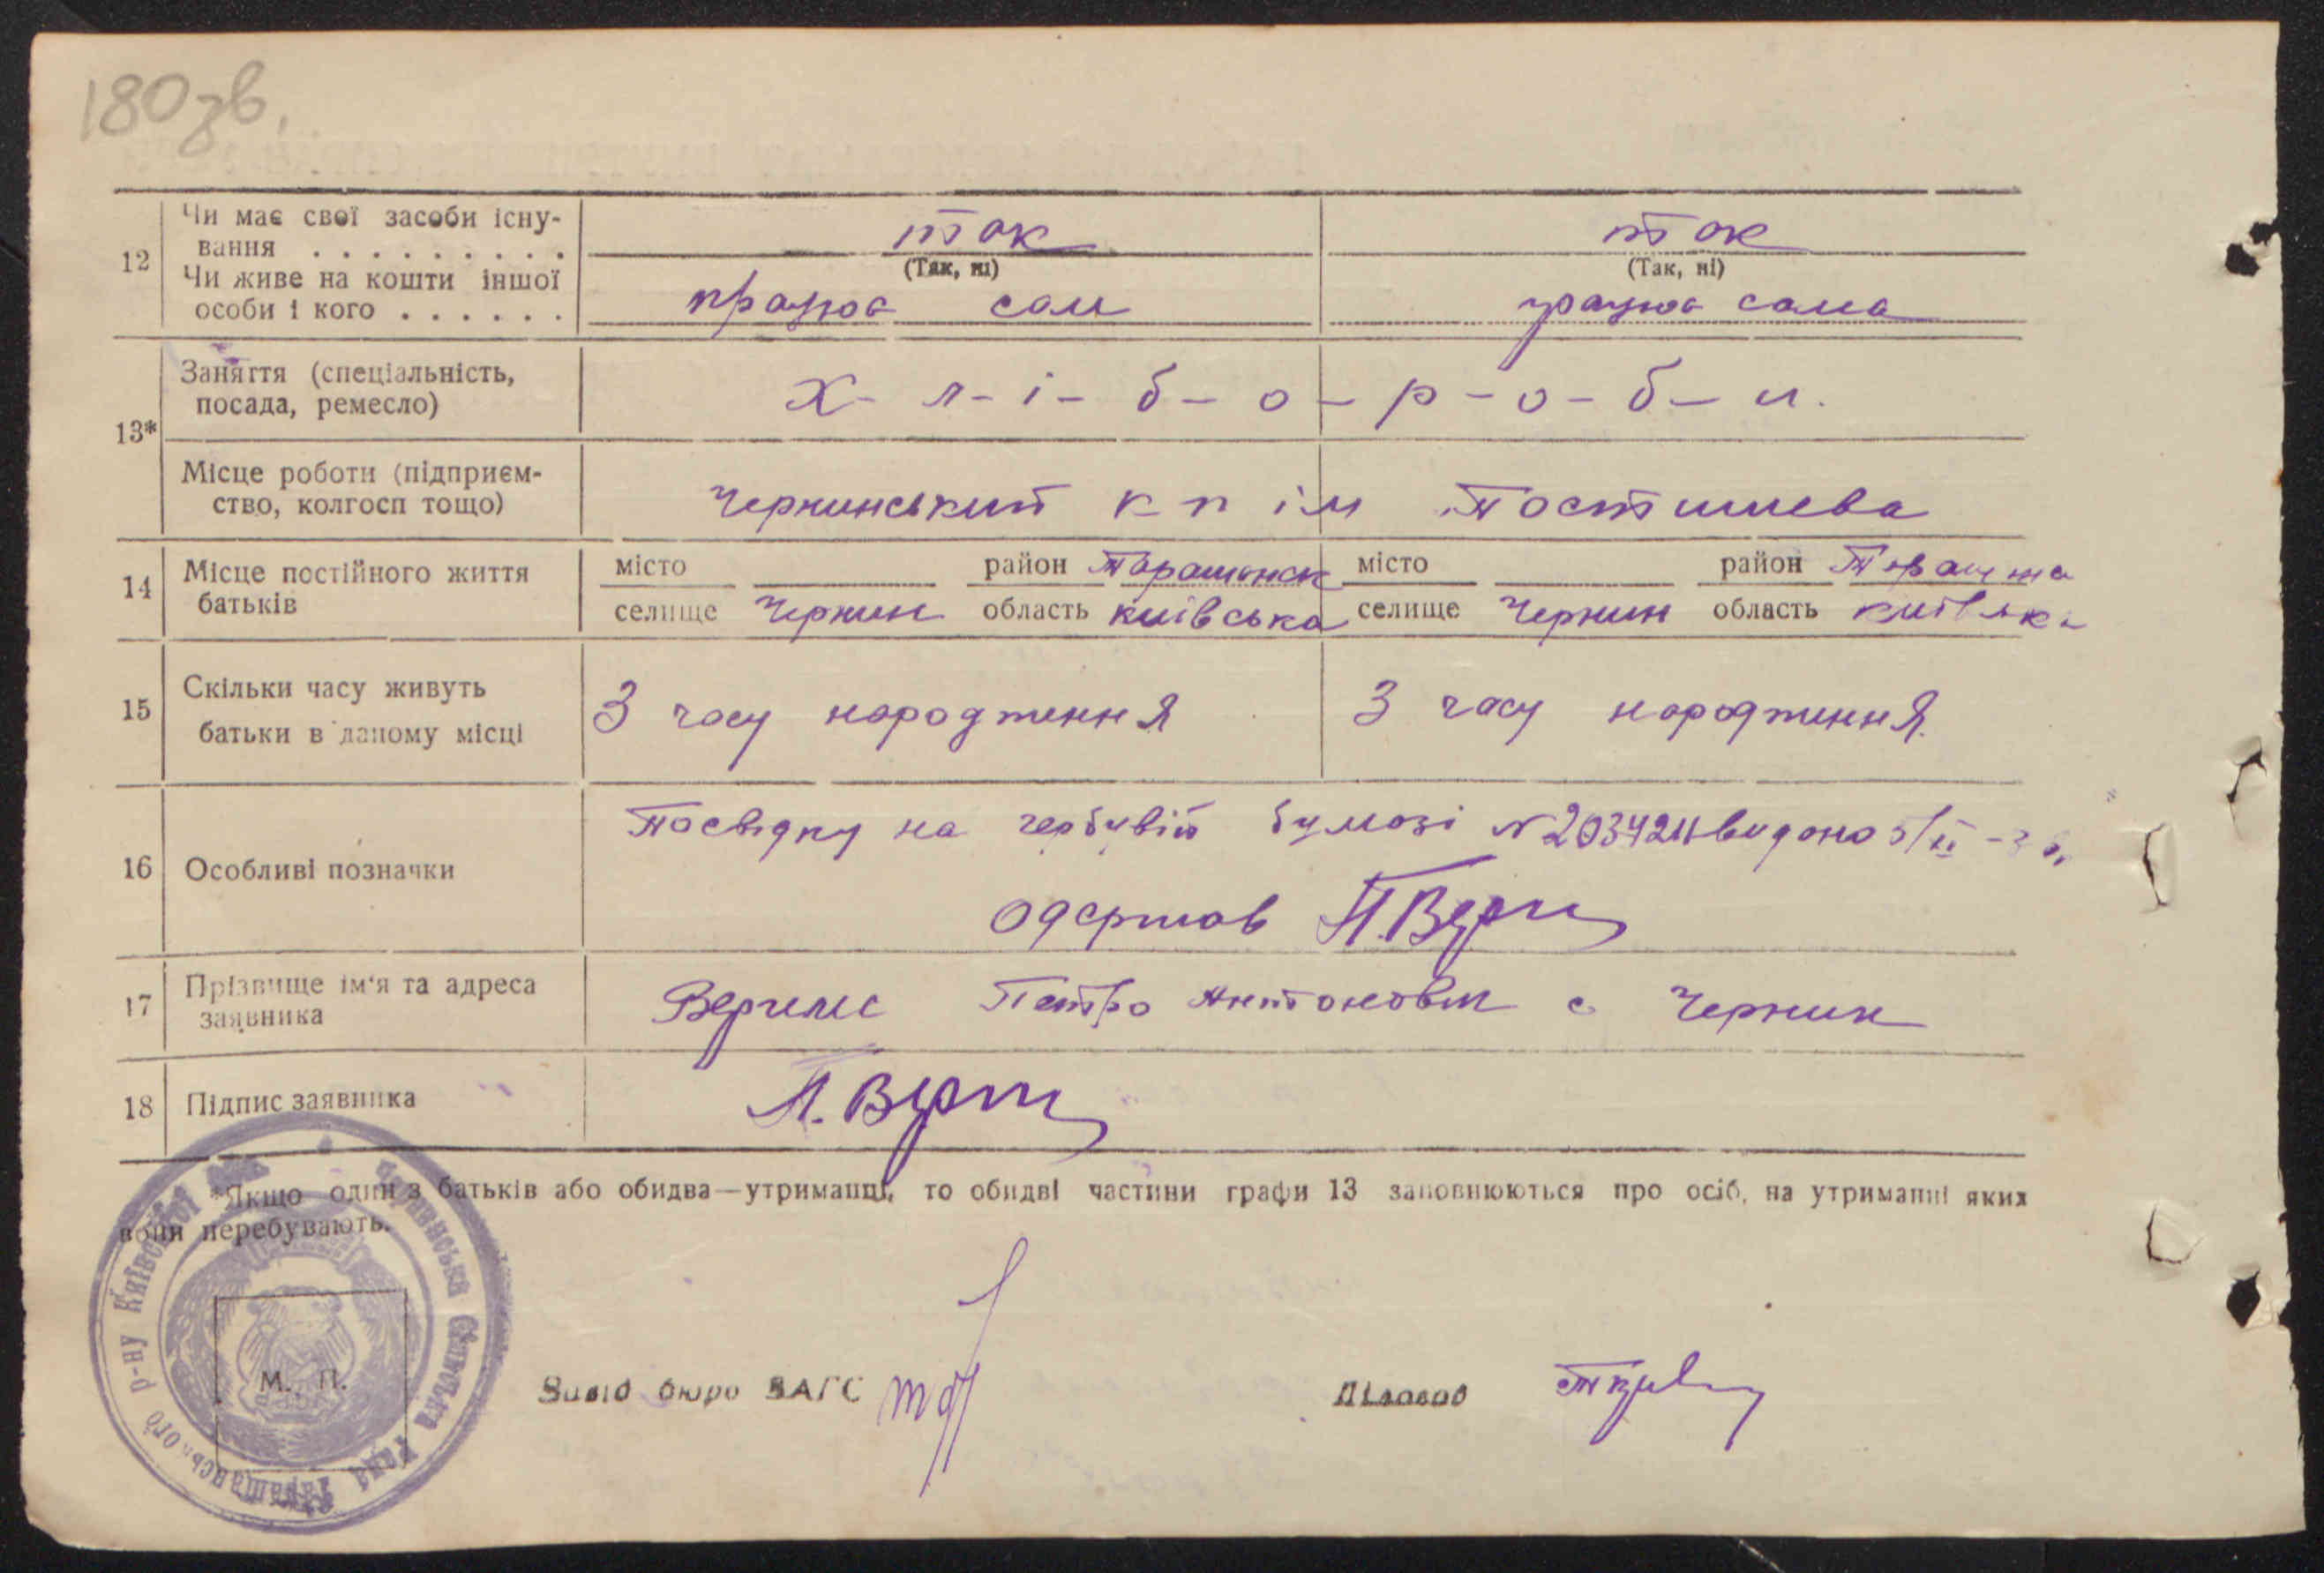 180 зв.
12 Чи має свої засоби існу-
вання . . . . . . . . . так так
(Так, ні) (Так, ні)
Чи живе на кошти іншої
особи і кого . . . . . . працює сам працює сама
13* Заняття (спеціальність,
посада, ремесло) Х-л-і-б-о-р-о-б-и.
Місце роботи (підприєм-
ство, колгосп тощо) Чернинський к п ім Постишева
14 Місце постійного життя
батьків
місто район Таращанськ місто район Тараща
селище Чернин область київська селище Чернин область київська
15 Скільки часу живуть
батьки в даному місці
З часу народження З часу народження
16 Особливі позначки
Посвідку на гербувій бумазі N видано 5/II
одержав П.
17 Прізвище ім'я та адреса
заявника
Петро Антонович с Чернин
18 Підпис заявника П.
*Якщо один з батьків або обидва—утриманці, то обидві частини графи 13 заповнюються про осіб, на утриманні яких
вони перебувають.
Чернинська Сільська Рада Таращанського р-ну Київської
М. П.
Завід бюро ЗАГС Діловод